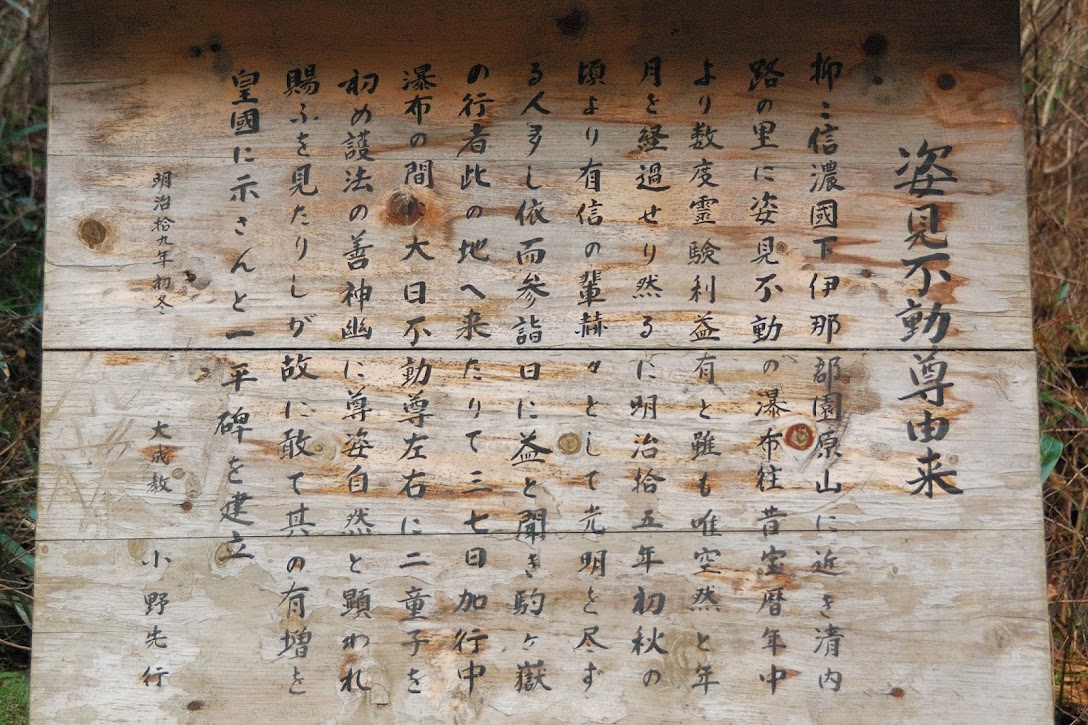 姿見不動尊由来
抑ミ信濃國下伊那郡園原山に近き清内
路の里に姿見不動の瀑布往昔宝暦年中
より数度霊験利益有と雖も唯空然と年
月を経過せり然るに明治拾五年初秋の
頃より有信の輩赫々として光明を尽す
る人多し依而参詣日に益と聞き駒ヶ嶽
の行者此の地へ来たりて三七日加行中
瀑布の間に大日不動尊左右に二童子を
初め護法の善神幽に尊姿自然と顕われ
賜ふを見たりしが故に敢て其の有増を
皇國に示さんと一平碑を建立
明治拾九年初冬
大成教 小野先行